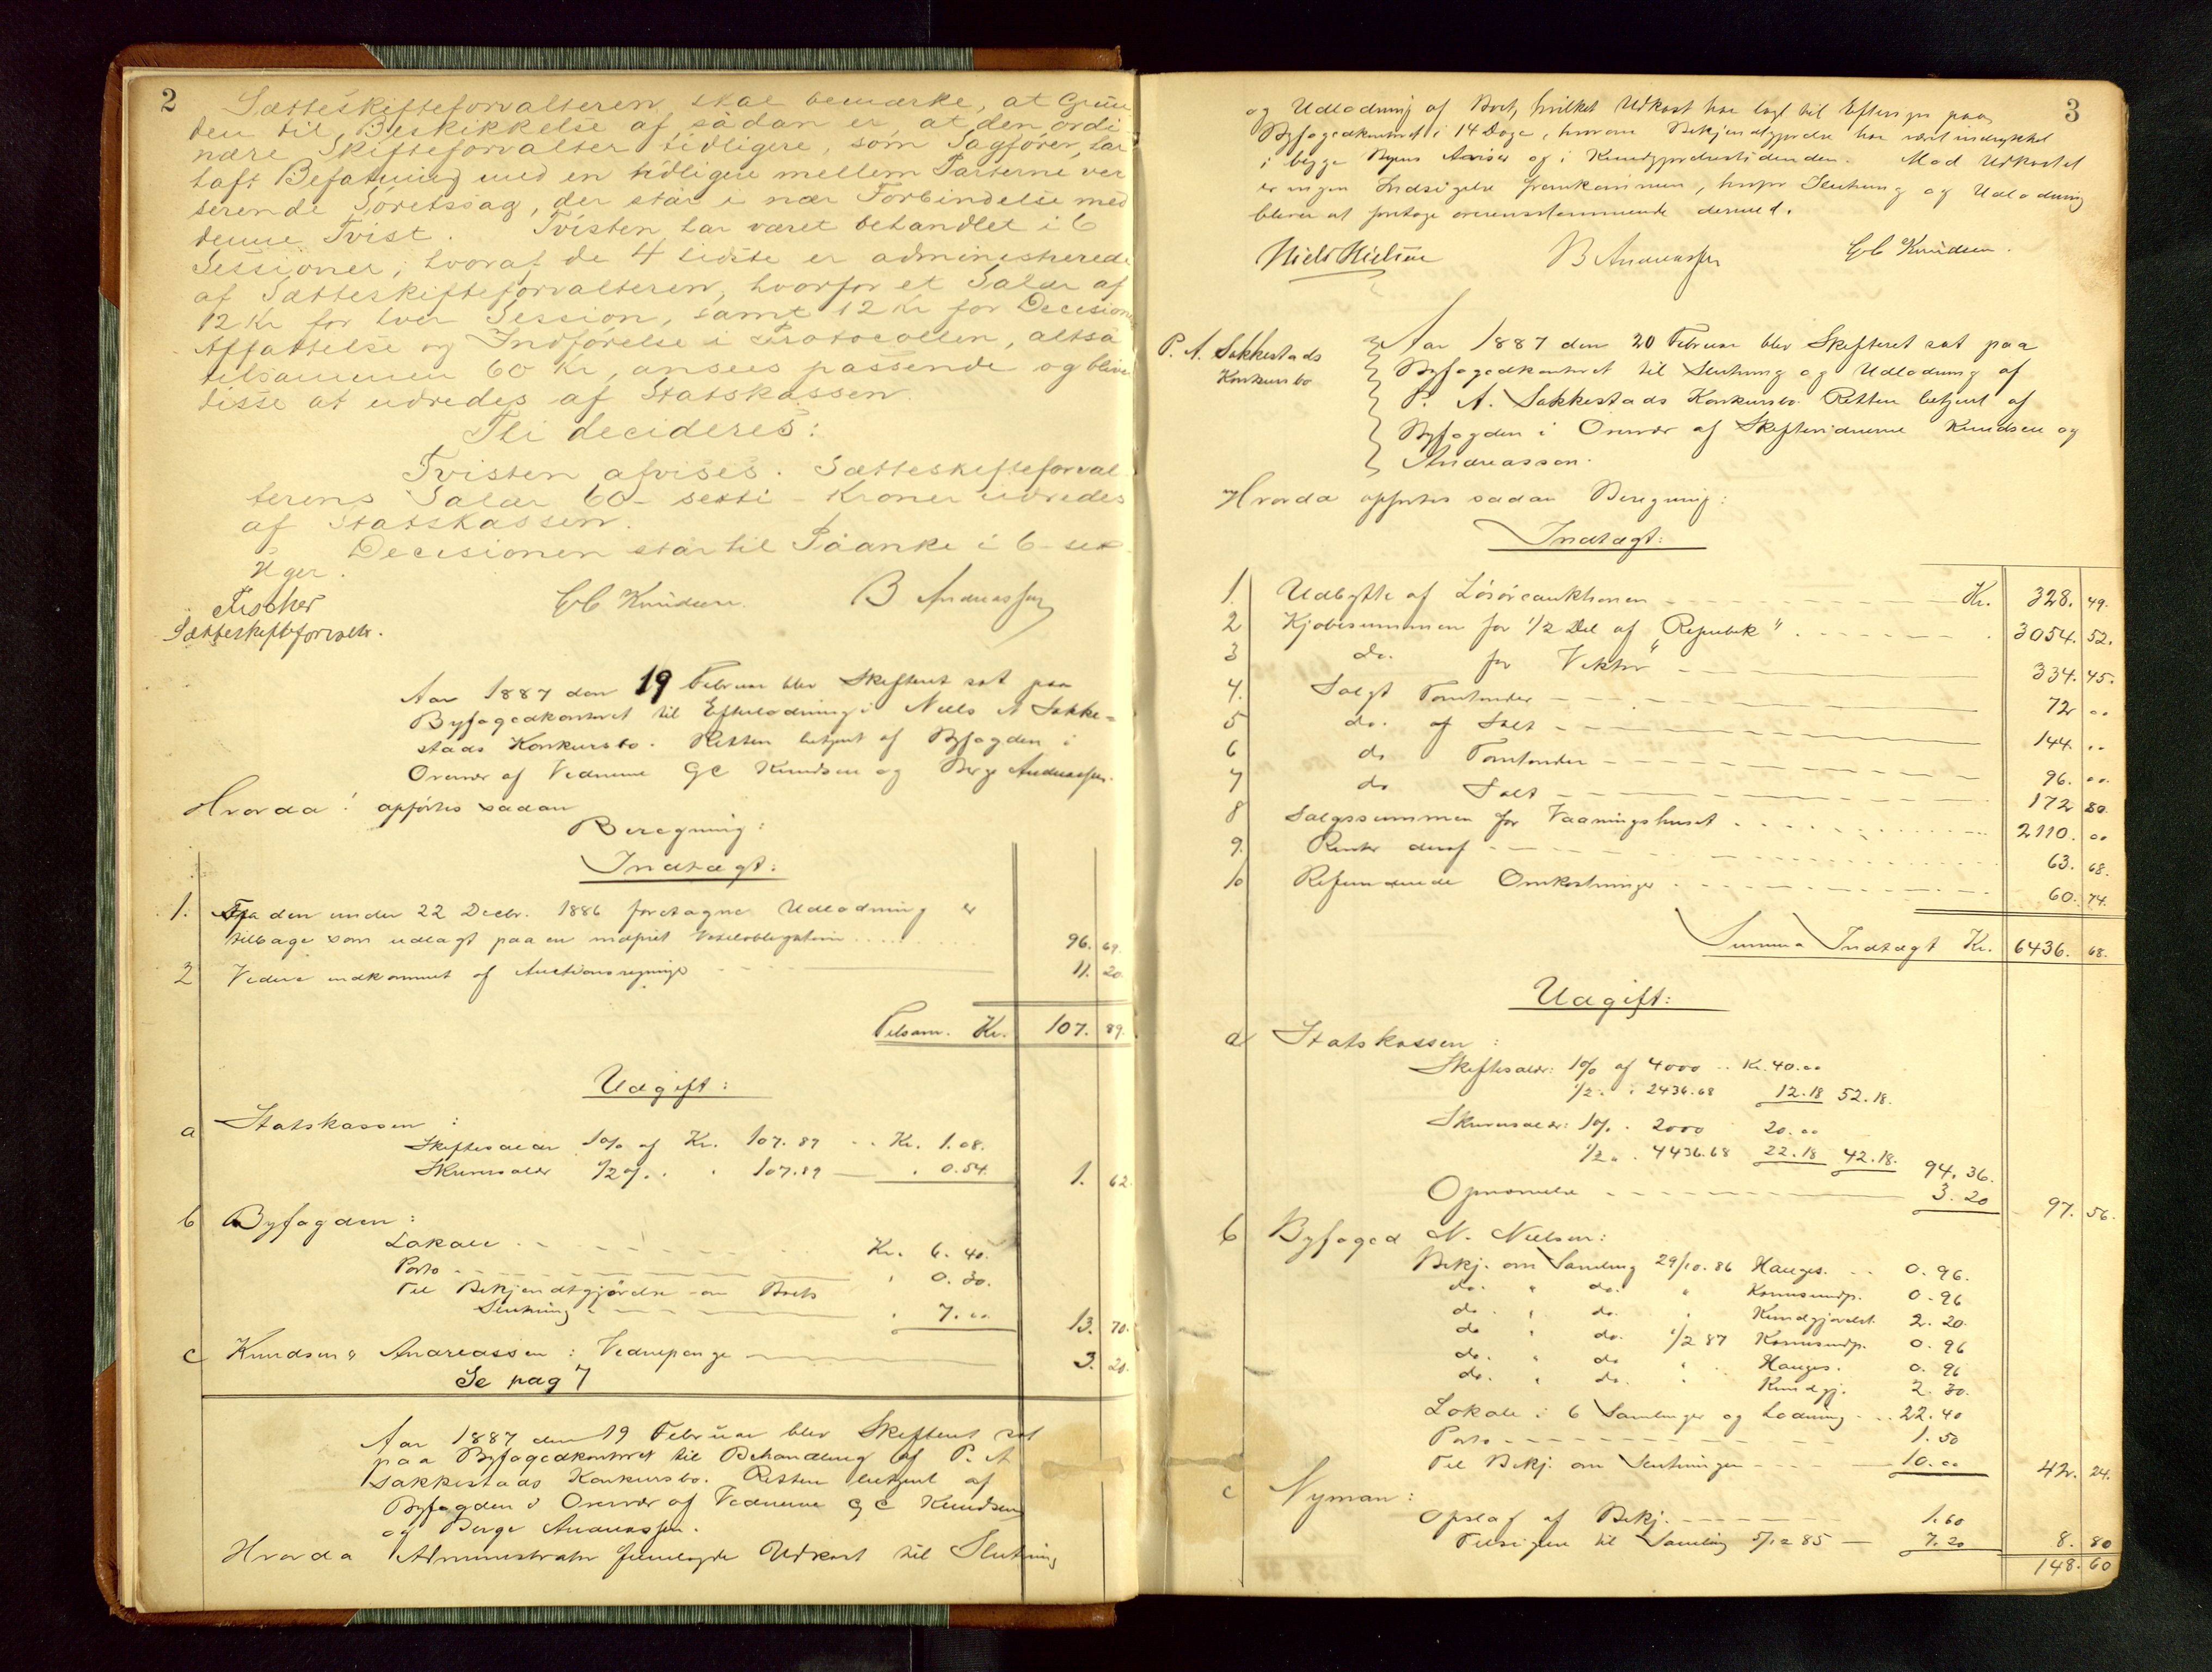 2
Sætteskifteforvalteren skal bemærke, at Grun
den til Beskikkelse af sådan er, at den ordi
nære Skifteforvalter tidligere, som Sagfører, har
haft Befatning med en tidligere mellem Parterne ver
serende Søretssag, der står i nær Forbindelse med
denne Tvist. Tvisten har været behandlet i 6
Sessioner, hvoraf de 4 sidste er administrerede
af Sætteskifteforvalteren, hvorfor et Salær af
12 Kr for hver Session, samt 12 Kr for Decisionens
Affattelse og Indførelse i Protocollen, altså
tilsammen 60 Kr, ansees passende og blive
disse at udredes af Statskassen.
Thi decideres:
Tvisten afvises. Sætteskifteforval
terens Salær 60 - seksti - Kroner udredes
af Statskassen.
Decisionen står til Påanke i 6 - sex
Uger.
Fischer
GC Knudsen. B Andreassen
Sætteskifteforvaltr.
Aar 1887 den 19 Februar blev Skifteret sat paa
Byfogedkontoret til Efterlodning i Niels A Sakke=
stads Konkursbo. Retten betjent af Byfogden i
Overvær af Vidnerne GC Knudsen og Berge Andreassen.
Hvorda! opførtes sadan
Beregning:
Indtægt:
1. Fra den under 22 Decbr. 1886 foretagne Udlodning er
tilbage som udlagt paa en indfriet Vexelobligation 96. 69.
2 Videre indkommet af Auctionsregninge 11. 20.
Tilsam. Kr. 107. 89.
Udgift:
a Statskassen:
Skiftesalær 1% af Kr. 107.89 .. Kr. 1.08.
Skriversalær 1/2 %. " 107.89 — " 0.54. 1. 62.
b Byfogden:
Lokale Kr. 6.40.
Porto " 0.30.
Til Bekjendtgjørelse om Boets
Slutning " 7.00 13. 70.
c Knudsen & Andreassen: Vidnepenge 3. 20.
Se pag 7
Aar 1887 den 19 Februar blev Skifteret sat
paa Byfogedkontoret til Behandling af P. A
Sakkestads Konkursbo. Retten betjent af
Byfogden i Overvær af Vidnerne G C Knudsen
og Berge Andreassen.
Hvorda Administrator fremlagde Udkast til Slutning
3
og Udlodning af Boet, hvilket Udkast har lagt til Eftersyn paa
Byfogedkontoret i 14 Dage, hvorom Bekjendtgjørelse har været indrykket
i begge Byens Aviser og i Kundgjørelsestidenden. Mod Udkastet
er ingen Indsigelse fremkommen, hvorfor Slutning og Udlodning
bliver at foretage overensstemmende dermed.
Niels Nielsen B Andreassen GC Knudsen.
P. A. Sakkestads
Konkursbo
Aar 1887 den 20 Februar blev Skifteret sat paa
Byfogedkontoret til Slutning og Udlodning af
P. A. Sakkestads Konkursbo. Retten betjent af
Byfogden i Overvær af Skiftevidnerne Knudsen og
Andreassen.
Hvorda opførtes sadan Beregning:
Indtægt:
1. Udbytte af Løsøreauktionen Kr. 328. 49.
2 Kjøbesummen for 1/2 Del af "Republik" 3054. 52.
3 do. for "Viktor" 334. 45.
4. Solgt Tomtønder 72 00
5 do. af Salt 144. 00
6 do Tomtønder 96. 00.
7 do Salt 172 80.
8 Salgssummen for Vaaningshuset 2110. 00
9. Renter deraf 63. 68.
10 Refunderede Omkostninger 60. 74.
Summa Indtægt Kr. 6436. 68.
Udgift:
a Statskassen:
Skiftesalær: 1% af 4000 .. Kr. 40.00
1/2 " " 2436.68 12.18 52.18.
Skriversalær: 1% " 2000 20.00
1/2 " " 4436.68 22.18 42.18. 94.36.
Opnævnelse 3.20 97. 56.
b Byfoged N. Nielsen:
Bekj. om Samling 29/10.86 Hauges. .. 0.96.
do. " do. " Karmsundp. 0.96
do. " do. " Kundgjørelst. 2.20.
do " do. 1/2 87 Karmsundp. 0.96
do. " do " Hauges. 0.96
do. " do. " Kundgj. 2.30.
Lokale i 6 Samlinger og Lodning .. 22.40
Porto 1.50
Til Bekj. om Slutningen 10.00 42. 24.
c Nyman:
Opslag af Bekj. 1.60
Tilsigelse til Samling 5/12 85 — 7.20 8. 80
148. 60